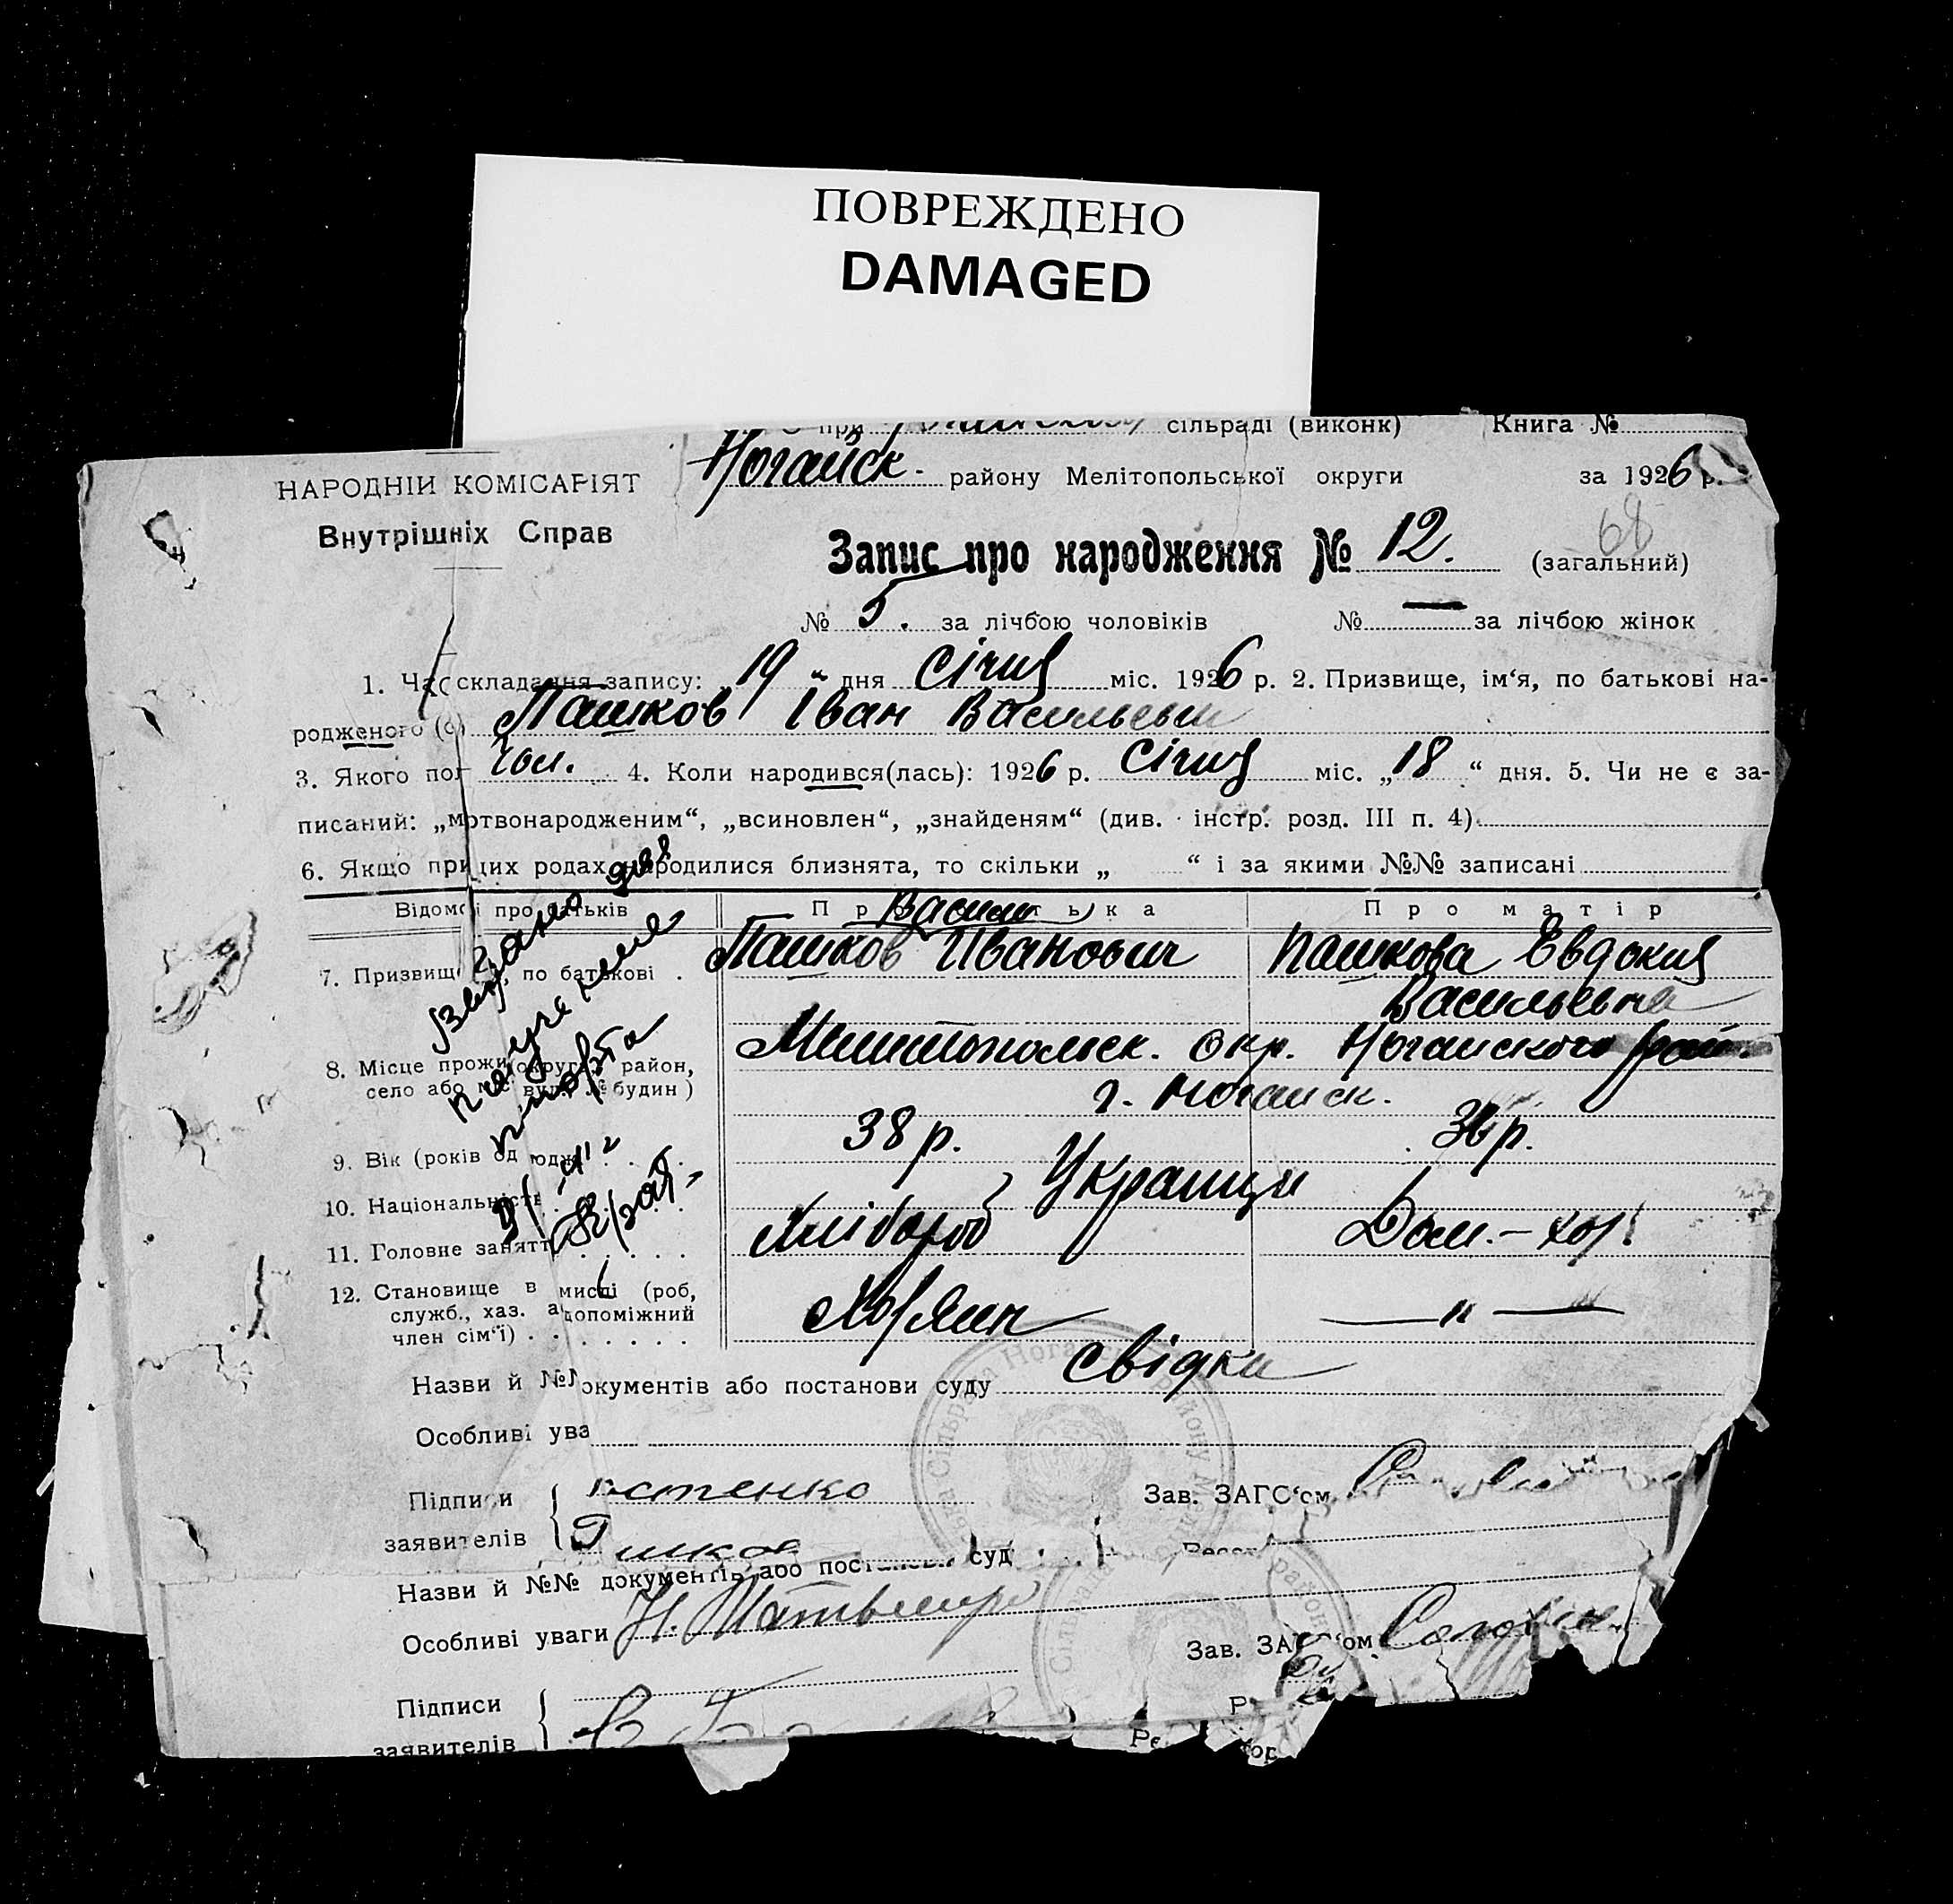 ПОВРЕЖДЕНО
DAMAGED
при сільраді (виконк) Книга №
Ногайск- району Мелітопольської округи за 1926 р.
НАРОДНІЙ КОМІСАРІЯТ
Внутрішніх Справ
Запис про народження № 12. (загальний)
68
№ 5. за лічбою чоловіків № — за лічбою жінок
1. Час складання запису: „19“ дня січня міс. 1926 р. 2. Призвище, ім‘я, по батькові на-
родженого (ї) Пашков Іван Васильевич
3. Якого пол чол. 4. Коли народився(лась): 1926 р. січня міс. „18“ дня. 5. Чи не є за-
писаний: „мертвонародженим“, „всиновлен“, „знайденям“ (див. інстр. розд. III п. 4)
6. Якщо при цих родах народилися близнята, то скільки „ “ і за якими №№ записані
Відомості про батьків Про батька Про матір
Василь
7. Призвище по батькові Пашков Иванович Пашкова Евдокия
Васильевна
8. Місце прожив (округа, район, Мелитопольск. окр. Ногайского рай.
село або міс вул. № будин) г. Ногайск.
9. Вік (років од 38 р. 36 р.
10. Національність Украинци
11. Головне заняття Хлібороб Дом.-хоз.
12. Становище в мислі (роб,
служб., хаз. або допоміжний Хозяин —„—
член сім‘ї)
Видано для
получения
паспорта
Назви й №№ документів або постанови суду свідки
Особливі ува
Підписи стенко Зав. ЗАГС‘ом
заявителів
Назви й №№ документів або постанови суд
Особливі уваги Зав. ЗАГС‘ом
Підписи
заявителів